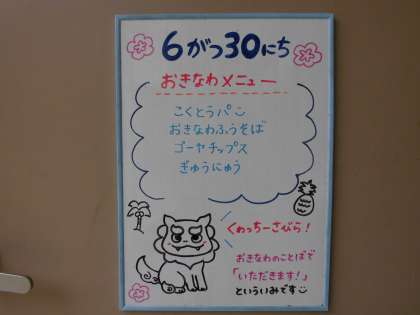 6がつ30にち
おきなわメニュー
こくとうパン
おきなわふうそば
ゴーヤチップス
ぎゅうにゅう
くわっちーさびら！
おきなわのことばで
「いただきます！」
といういみです